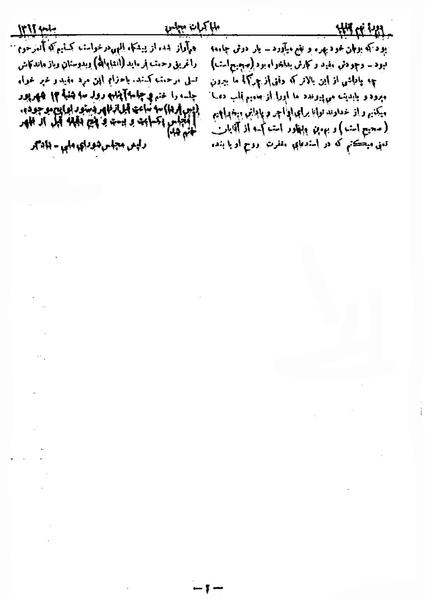 مذاکرات مجلس
بود که بوطن خود بهره و نفع میآورد - یار دوش جامعه
بود - وجودش مفید و کارش بدلخواه بود (صحیح است)
چه پاداشی از این بالاتر که وقتی از جرگهٔ ما بیرون
میرود و بابدیت می پیوندد ما اورا از صمیم قلب دعا
میکنیم و از خداوند توانا برای او اجر و پاداش میخواهیم
(صحیح است) و بهمین منظور است که از آقایان
تمنی میکنم که در استدعای مغفرت روح او با بنده
هم آواز شده از پیشگاه الهی درخواست کنیم که آنمرحوم
را غریق رحمت فرماید (انشاءالله) و بدوستان و بازماندگانش
تسلی مرحمت کنند. باحترام این مرد مفید و خیر خواه
جلسه را ختم و جلسه آتیه روز سه شنبه ۱۳ شهریور
سه ساعت قبل از ظهر دستور لوایح موجوده.
مجلس یکساعت و بیست و پنج دقیقه قبل از ظهر
ختم شد
رئیس مجلس شورای ملی - دادگر
— ۲ —